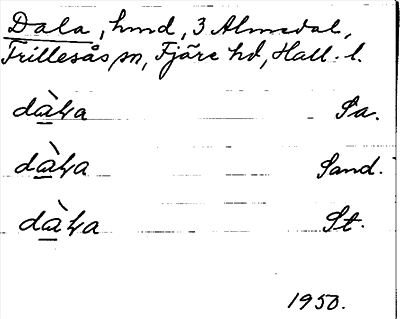 Dala, hmd, 3 Almedal,
Frillesås sn, Fjäre hd, Hall. l.
dàɫa Sa.
dàɫa Sand.
dàɫa St.
1950.